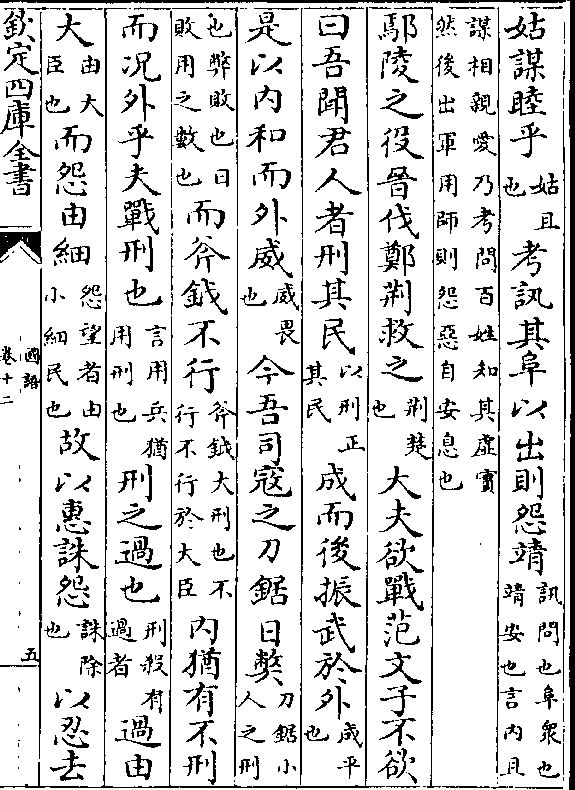 姑謀睦乎姑且也考訊其阜以出則怨靖訊問也阜衆也靖安也言内且
謀相親愛乃考問百姓知其虚實然後出軍用師則怨惡自安息也
鄢陵之役晉伐鄭荆救之荆楚也大夫欲戰范文子不欲
曰吾聞君人者刑其民以刑正其民成而後振武於外成平也
是以内和而外威威畏也今吾司寇之刀鋸日弊刀鋸小人之刑
也弊敗也日敗用之數也而斧鉞不行斧鉞大刑也不行不行於大臣内猶有不刑
而况外乎夫戰刑也言用兵猶用刑也刑之過也刑殺有過者過由
大由大臣也而怨由細怨望者由小細民也故以惠誅怨誅除也以忍去
欽定四庫全書
國語
卷十二
五